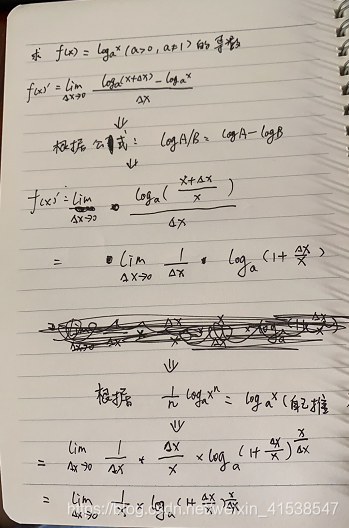 求 f(x) = logaˣ (a>0, a≠1) 的导数
f(x)' = lim Δx→0 loga(x+Δx) - logaˣ / Δx
⇓
根据公式: logA/B = logA - logB
⇓
f(x)' = lim Δx→0 loga(x+Δx / x) / Δx
= lim Δx→0 1/Δx · loga(1+Δx/x)
⇓
根据 1/n logaxⁿ = logaˣ (自己推
= lim Δx→0 1/Δx * Δx/x × loga(1+Δx/x)^(x/Δx)
= lim Δx→0 1/x × loga(1+Δx/x)^(x/Δx)